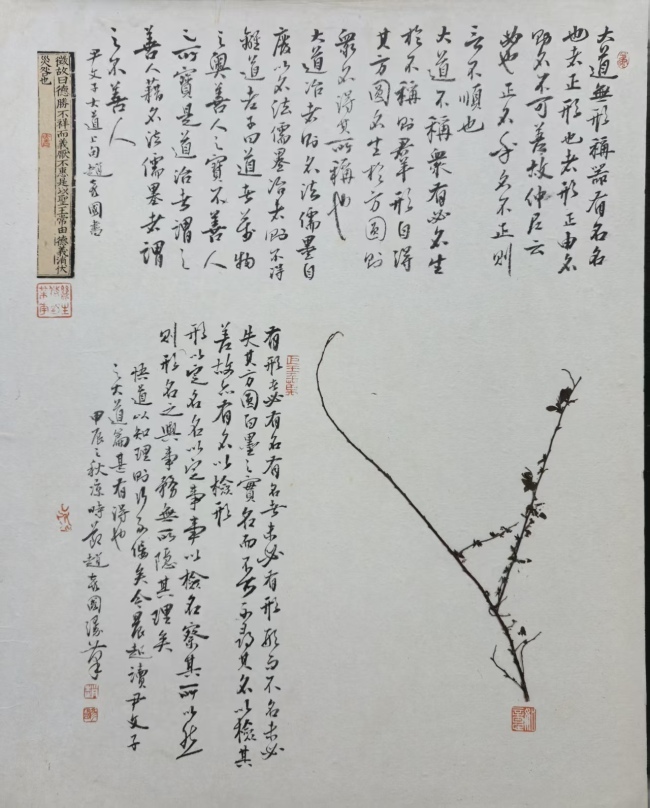 大道無形稱器有名名
也者正形也者形正由名
則名不可差故仲尼云
必也正名乎名不正則
言不順也
大道不稱衆有必名生
於不稱則羣形自得
其方圓名生於方圓則
衆名得其所稱也
大道治者則名法儒墨自
廢以名法儒墨治者則不得
離道老子曰道者萬物
之奥善人之寶不善人
之所寶是道治者謂之
善人藉名法儒墨者謂
之不善人
尹文子大道上句趙國書
徵故曰德勝不祥而義厭不惠是以聖王常由德義消伏
災咎也
有形者必有名有名者未必有形形而不名未必
失其方圓白黑之實名而不可不尋其名以檢其
差故亦有名以檢形
形以定名名以定事事以檢名察其所以然
則形名之與事務無所隱其理矣
悟道以知理則矣今晨起讀尹文子
之大道篇甚有得也
甲辰之秋涼時節趙國筆